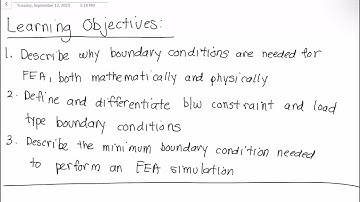 Tuesday, September 12, 2023 5:19 PM
Learning Objectives:
1. Describe why boundary conditions are needed for
FEA, both mathematically and physically
2. Define and differentiate b/w constraint and load
type boundary conditions
3. Describe the minimum boundary condition needed
to perform an FEA simulation